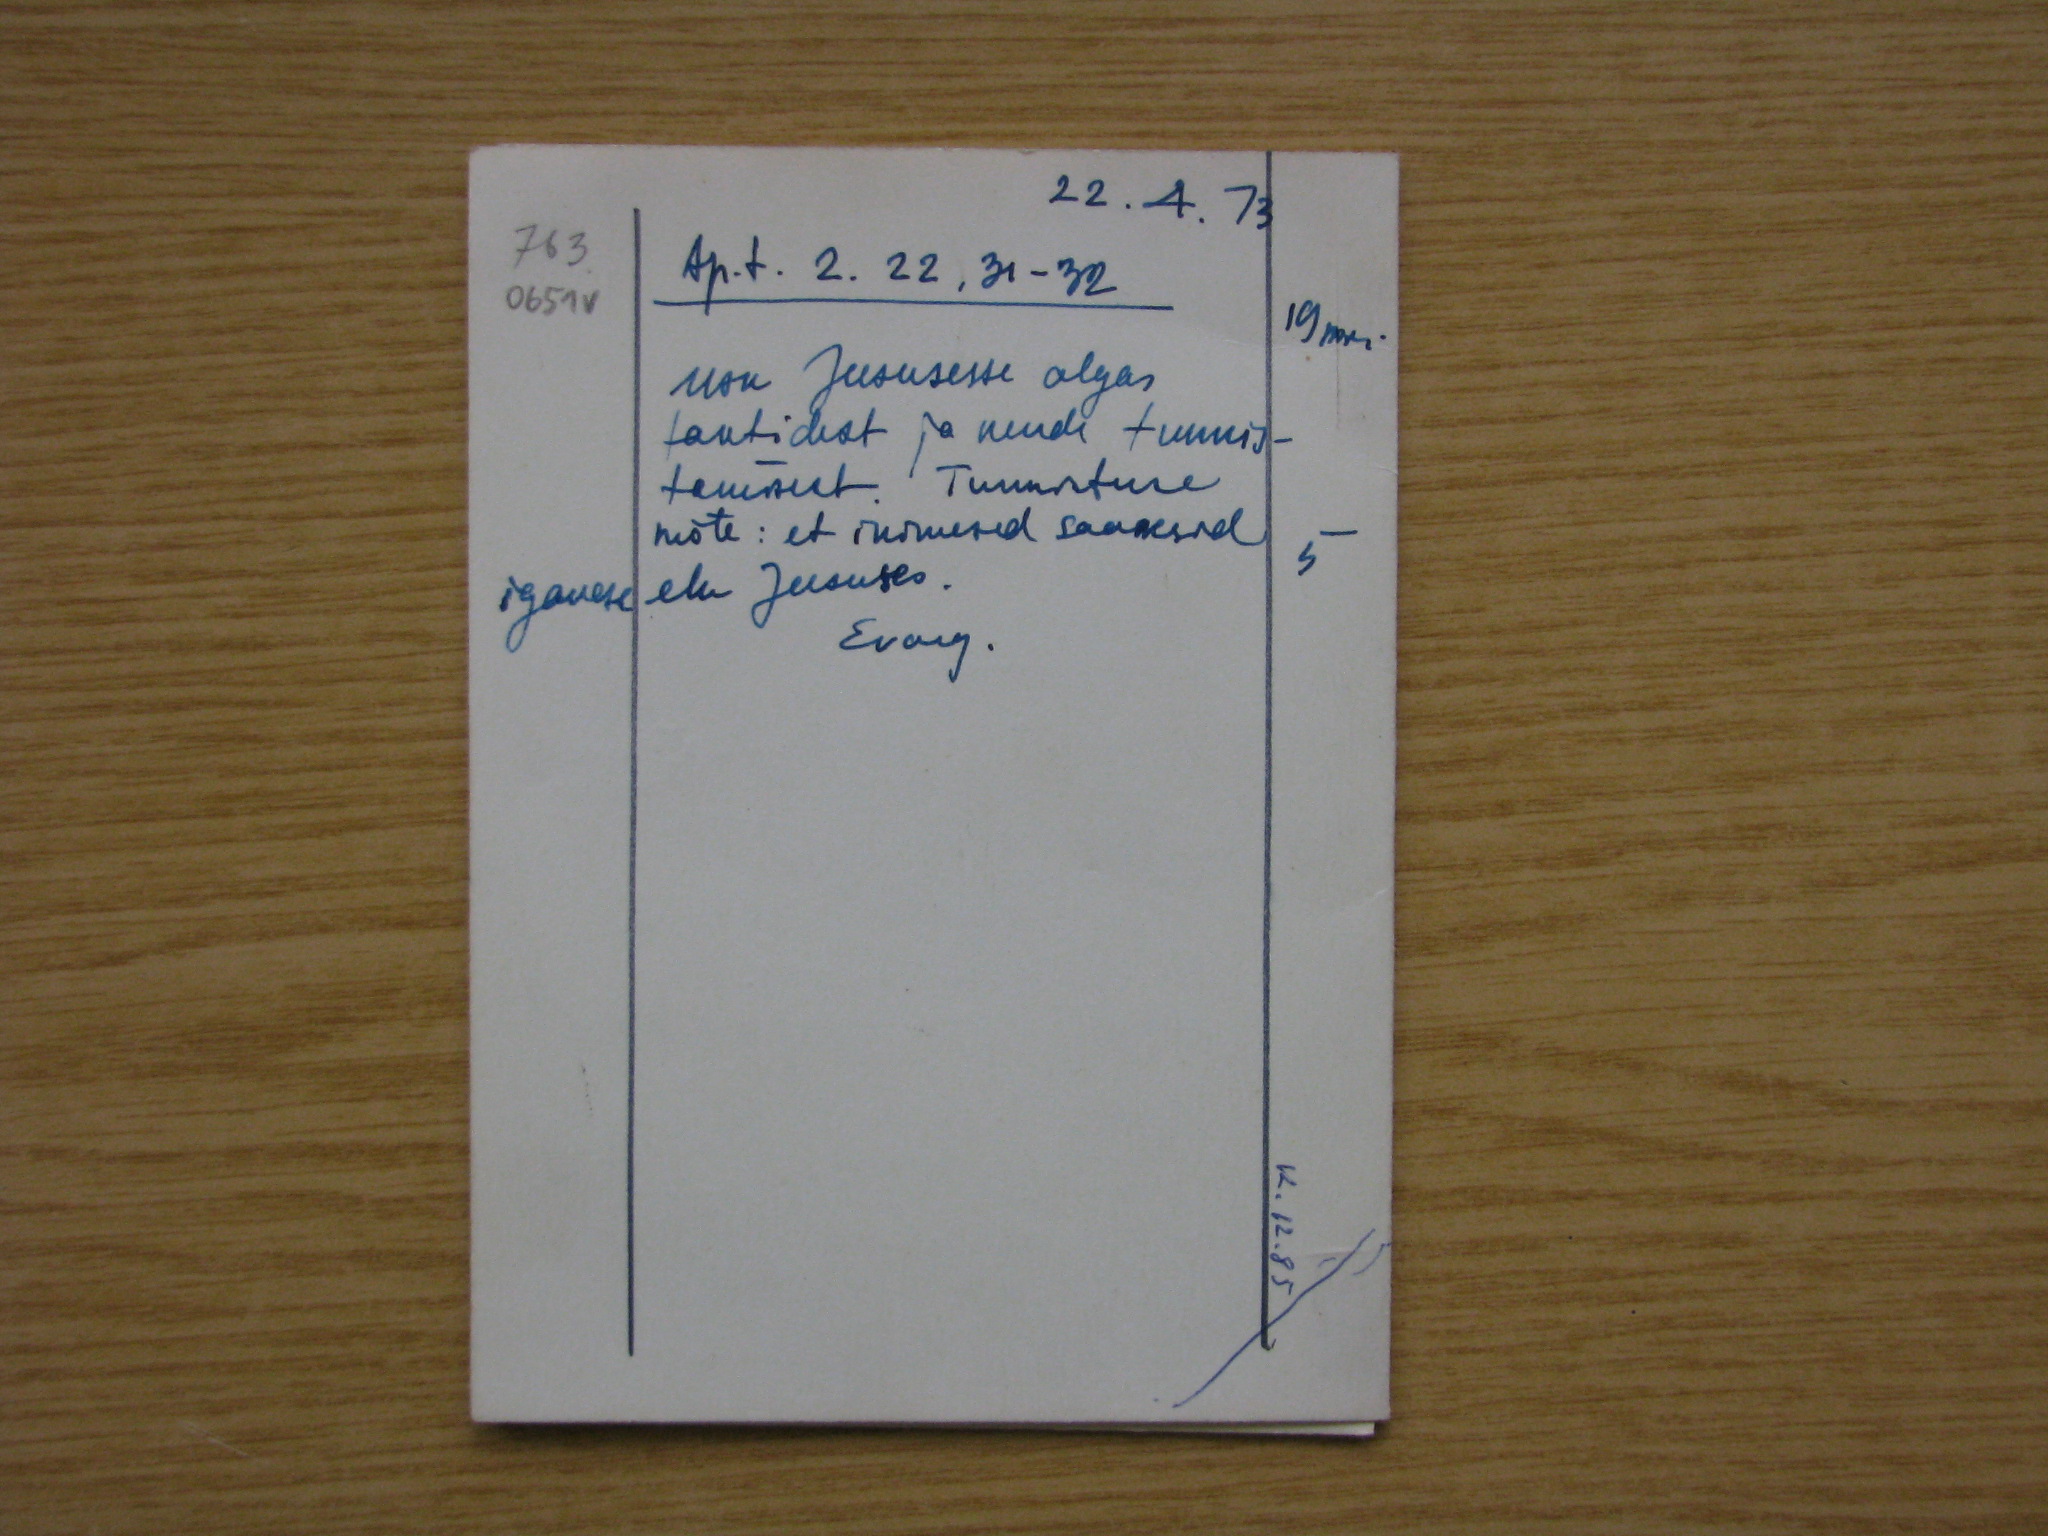 22.4.73
763
0651v
Ap.t. 2. 22, 31-32
19 
Usk Jeesusesse algas
faktidest ja nende tunnis-
tamisest. Tunnistuse
mõte: et inimesed saaksid
5
igavese elu Jeesuses.
Evang.
K. 12.85